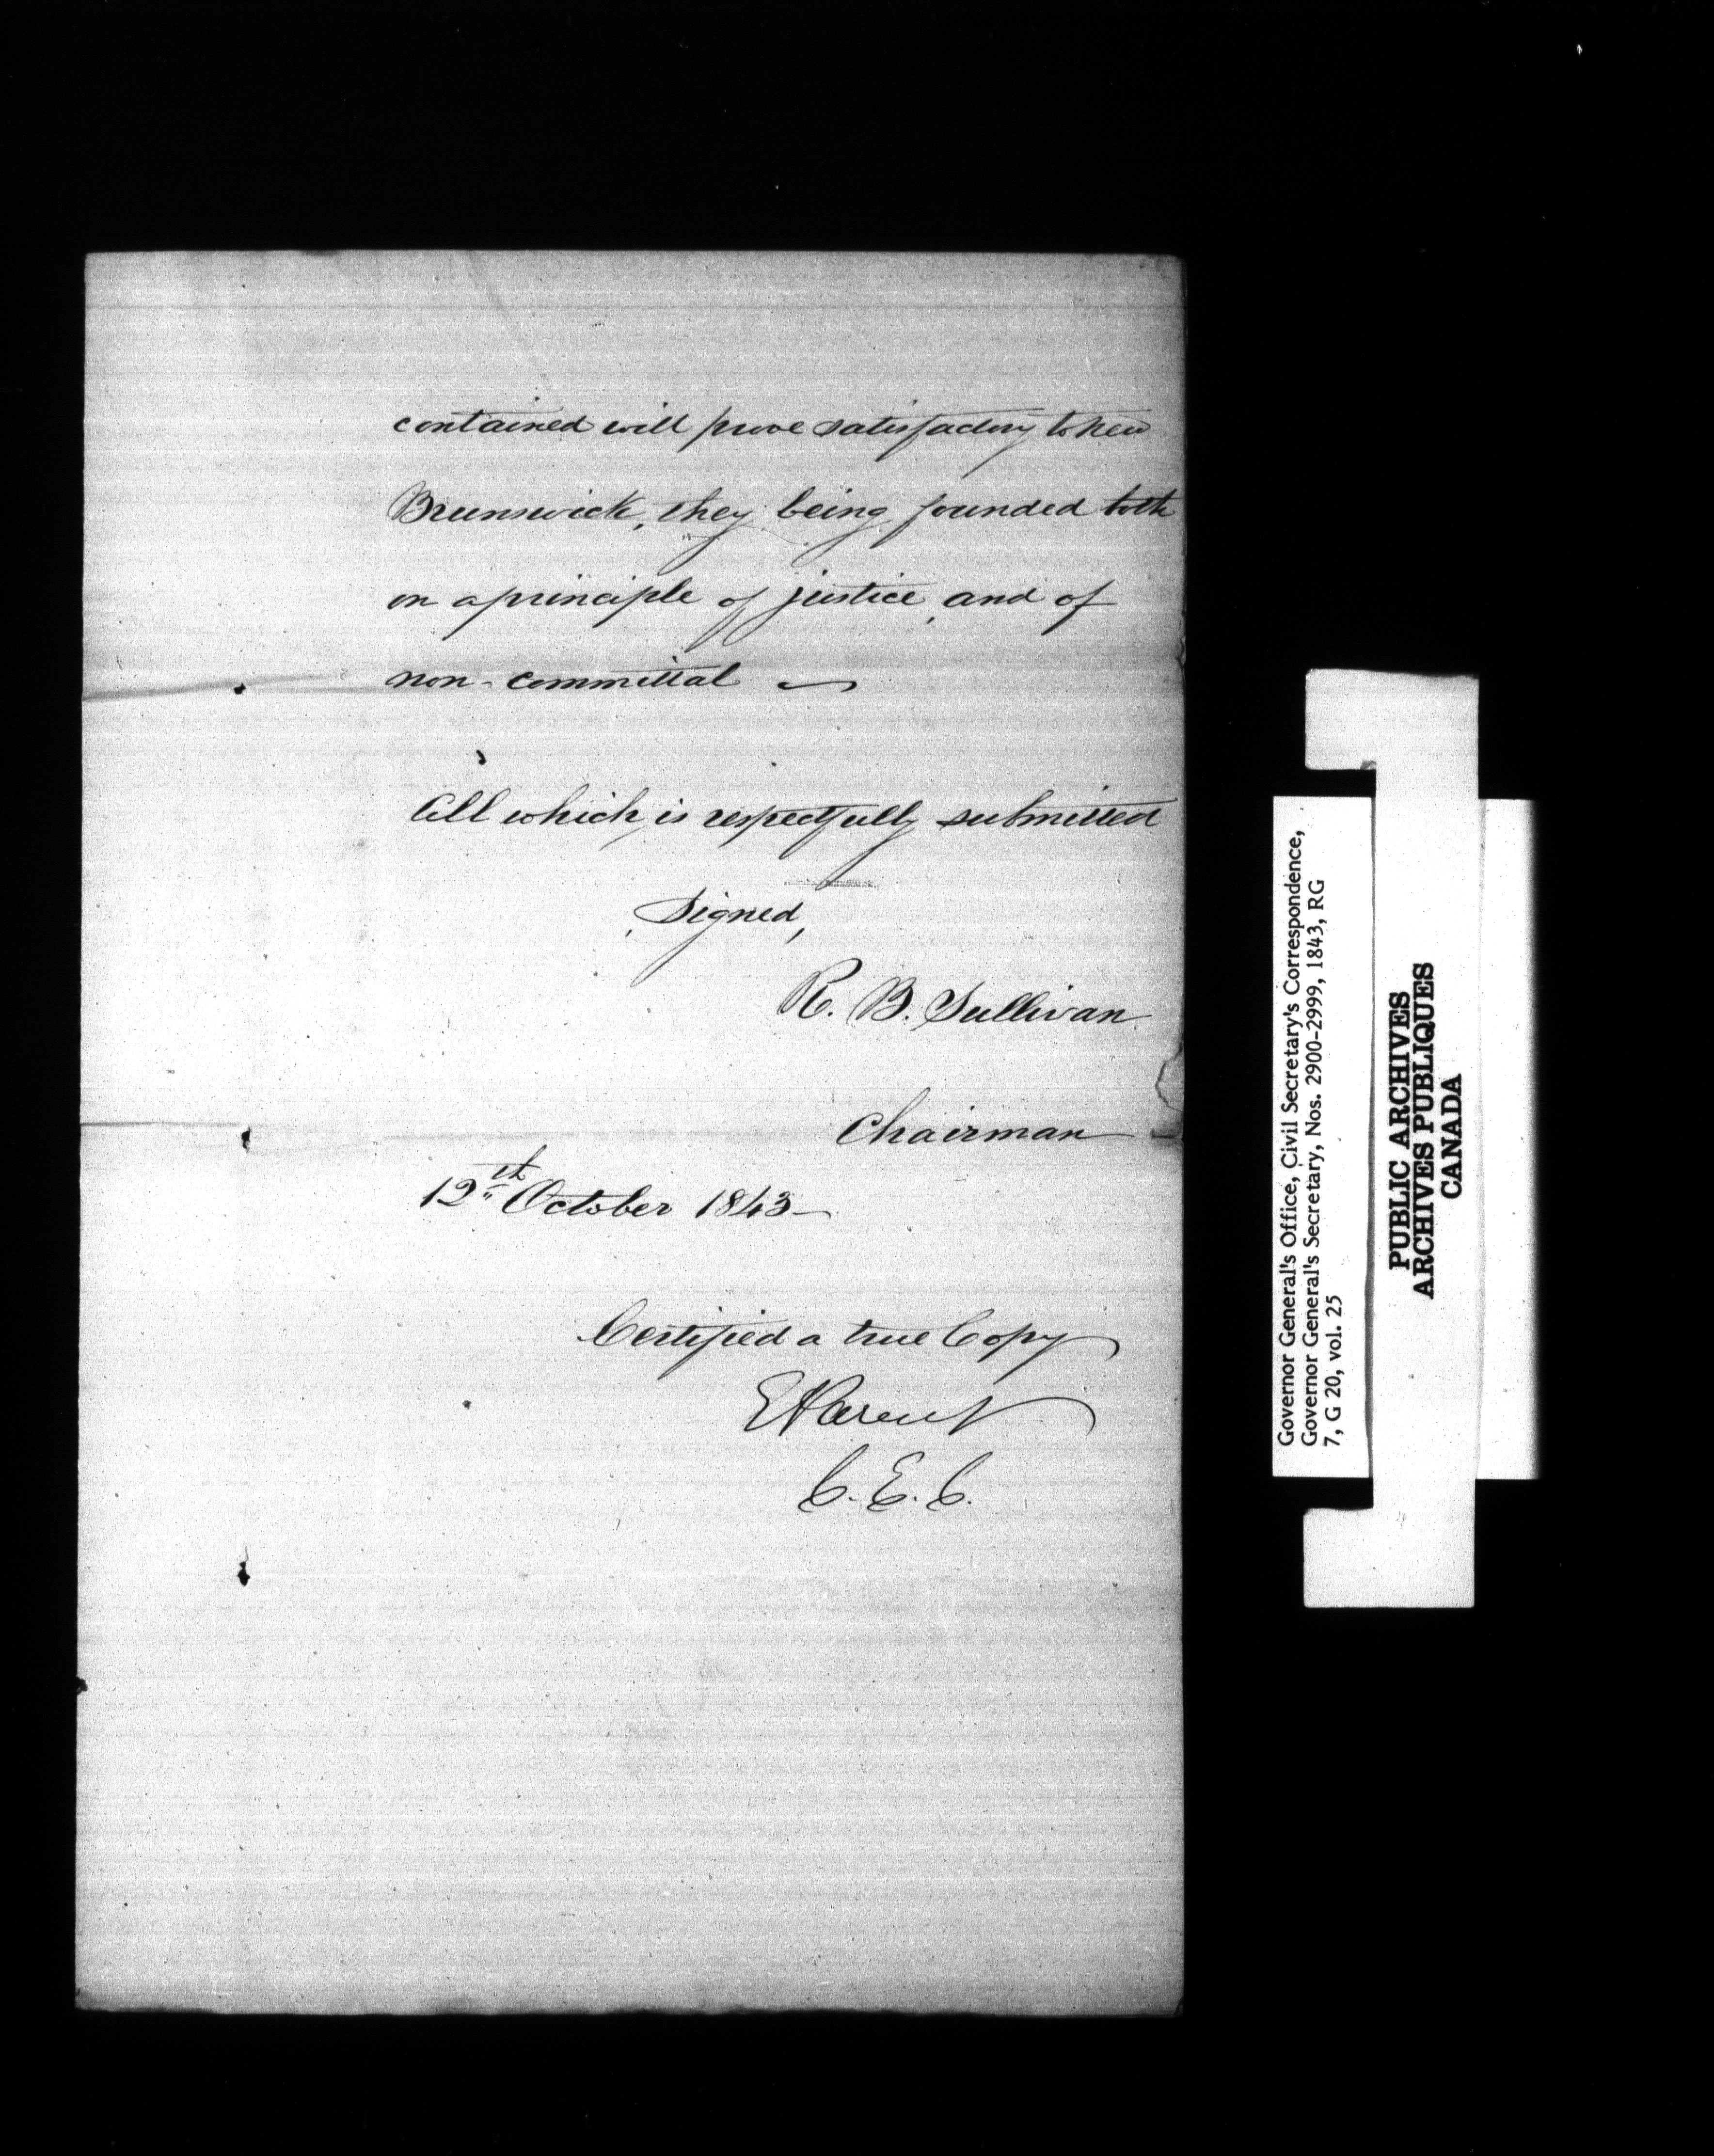 contained will prove satisfactory to New
Brunswick, they being founded both
on a principle of justice, and of
non-committal
All which is respectfully submitted
Signed,
R. B. Sullivan
Chairman
12th October 1843
Certified a true Copy
E Parent
C. E. C.
Governor General's Office, Civil Secretary's Correspondence,
Governor General's Secretary, Nos. 2900-2999, 1843, RG
7, G 20, vol. 25
PUBLIC ARCHIVES
ARCHIVES PUBLIQUES
CANADA